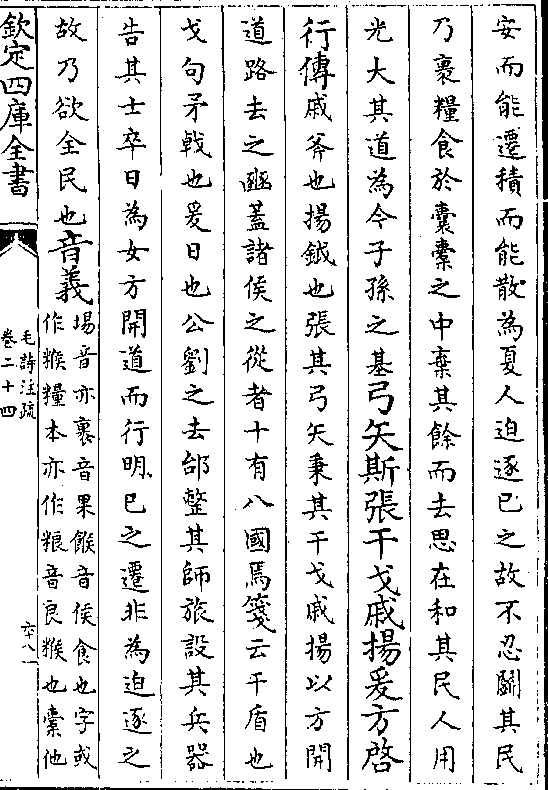 安而能遷積而能散為夏人迫逐已之故不忍鬬其民
乃裹糧食於囊橐之中棄其餘而去思在和其民人用
光大其道為今子孫之基弓矢斯張干戈戚揚爰方啓
行傳戚斧也揚鉞也張其弓矢秉其干戈戚揚以方開
道路去之豳蓋諸侯之從者十有八國焉箋云干盾也
戈句矛戟也爰曰也公劉之去邰整其師旅設其兵器
告其士卒曰為女方開道而行明已之遷非為迫逐之
故乃欲全民也音義埸音亦裹音果餱音侯食也字或
作糇糧本亦作粮音良糇也橐他
欽定四庫全書
毛詩注疏
卷二十四